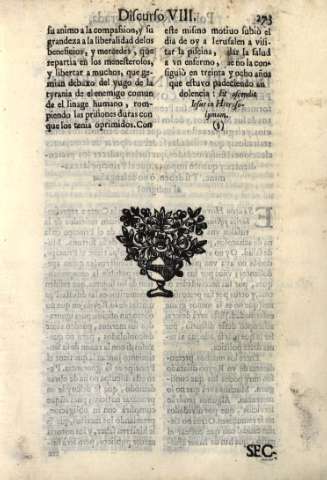 Discurso VIII. 273
su animo a la compassion, y su
grandeza a la liberalidad de los
beneficios, y mercedes, que
repartia en los menesterosos,
y libertar a muchos, que ge-
mian debaxo del yugo de la
tyrania de el enemigo comun
de el linage humano, rom-
piendo las prisiones duras con
que los tenia oprimidos. Con
este mismo motivo subiò el
dia de oy a Ierusalen a visi-
tar la piscina, dar la salud
a vn enfermo, que no la con-
siguiò en treinta y ocho años
que estuvo padeciendo su
dolencia: Et ascendit
Iesus in Hierosо-
lymam.
(§)
SEC-